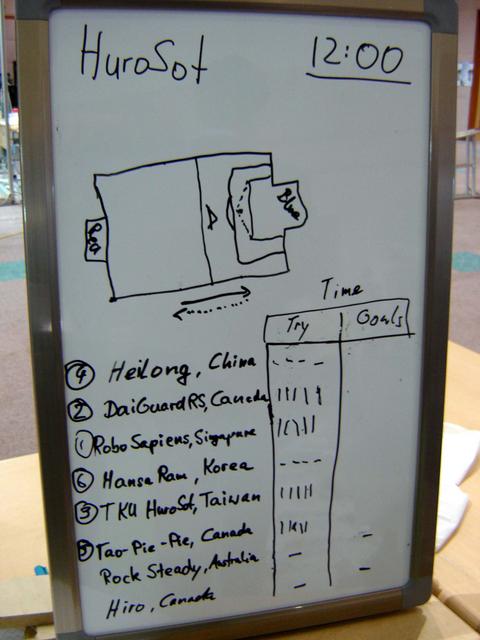 HuroSot
12:00
Red
Blue
Time
Try Goals
④ HeiLong, China
② DaiGuardRS, Canada
① RoboSapiens, Singapure
⑥ HansaRam, Korea
③ TKU HuroSot, Taiwan
Tao-Pie-Pie, Canada
Rock Steady, Australia
Hiro, Canada